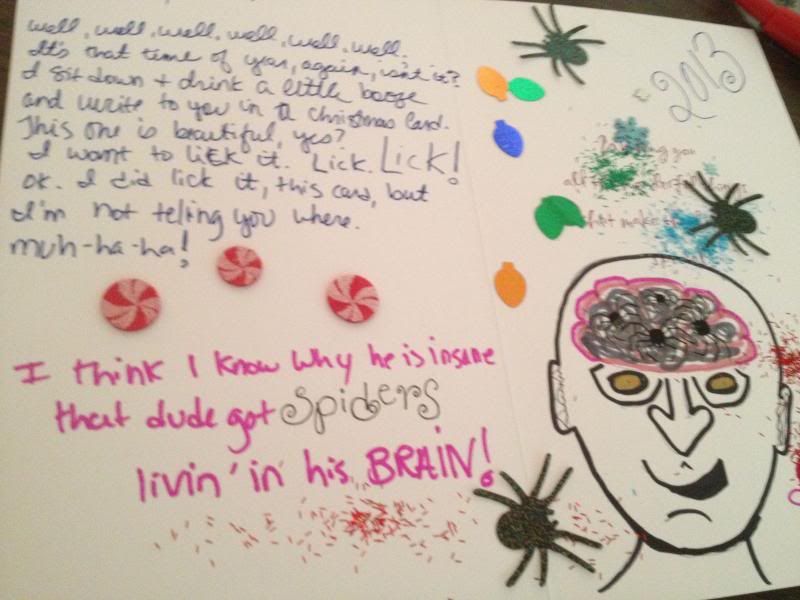 well, well, well, well, well, well.
It's that time of year, again, isn't it?
I sit down + drink a little booze
and write to you in a Christmas card.
This one is beautiful, yes?
I want to liEK it. Lick. LICK!
OK. I did lick it, this card, but
I'm not telling you where.
muh-ha-ha!
I think I know why he is insane
that dude got spiders
livin' in his BRAIN!
2013
you
all
that make